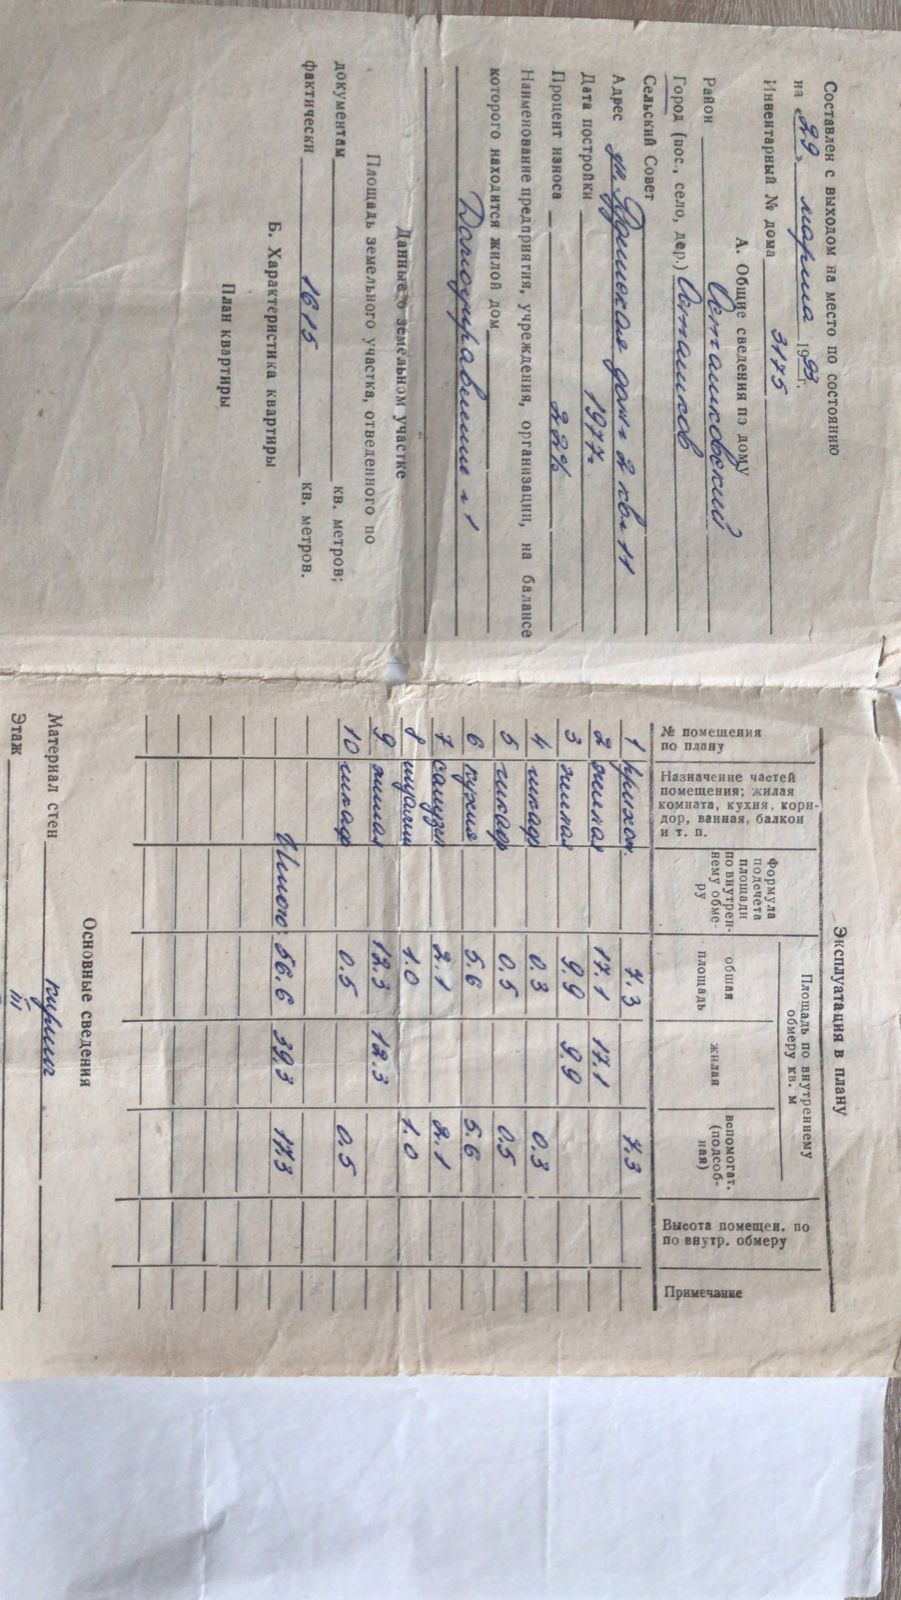 Составлен с выходом на место по состоянию
на «29» марта 1993 г.
Инвентарный № дома 3175
А. Общие сведения по дому
Район Осташковский
Город (пос., село, дер.) Осташков
Сельский Совет
Адрес ул. дом 2 кв. 11
Дата постройки 1977г
Процент износа 22%
Наименование предприятия, учреждения, организации, на балансе
которого находится жилой дом
Домоуправление №1
Данные о земельном участке
Площадь земельного участка, отведенного по
документам кв. метров;
фактически 1615 кв. метров.
Б. Характеристика квартиры
План квартиры
Эксплуатация в плану
№ помещения по плану
Назначение частей помещения; жилая комната, кухня, коридор, ванная, балкон и т. п.
Формула подсчета площади по внутреннему обмеру
Площадь по внутреннему обмеру кв. м
общая площадь
жилая
вспомогат. (подсобная)
Высота помещен. по по внутр. обмеру
Примечание
1 прихож. 7.3 7.3
2 жилая 17.1 17.1
3 жилая 9.9 9.9
4 шкаф 0.3 0.3
5 шкаф 0.5 0.5
6 кухня 5.6 5.6
7 санузл 2.1 2.1
8 1.0 1.0
9 жилая 12.3 12.3
10 шкаф 0.5 0.5
Итого: 56.6 39.3 17.3
Основные сведения
Материал стен кирпич
Этаж III